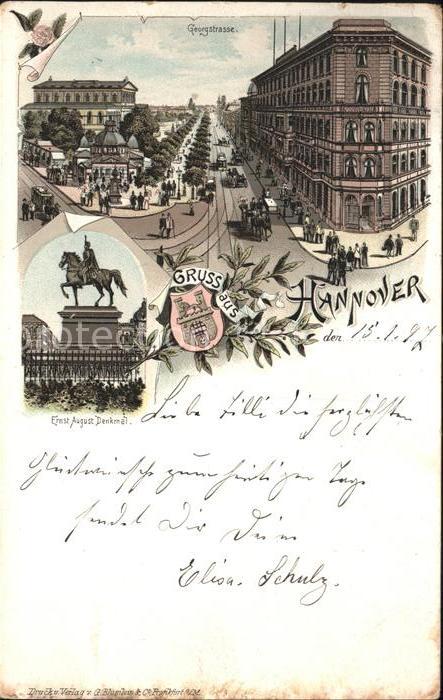 Georgstrasse.
GRUSS aus
HANNOVER
den 15.1.97
Ernst August Denkmal.
Liebe Lilli die herzlichsten
Glückwünsche zum heutigen Tage
sendet Dir Deine
Elisa. Schulz.
Druck u. Verlag v. G. Blümlein & Co. Frankfurt a/M.